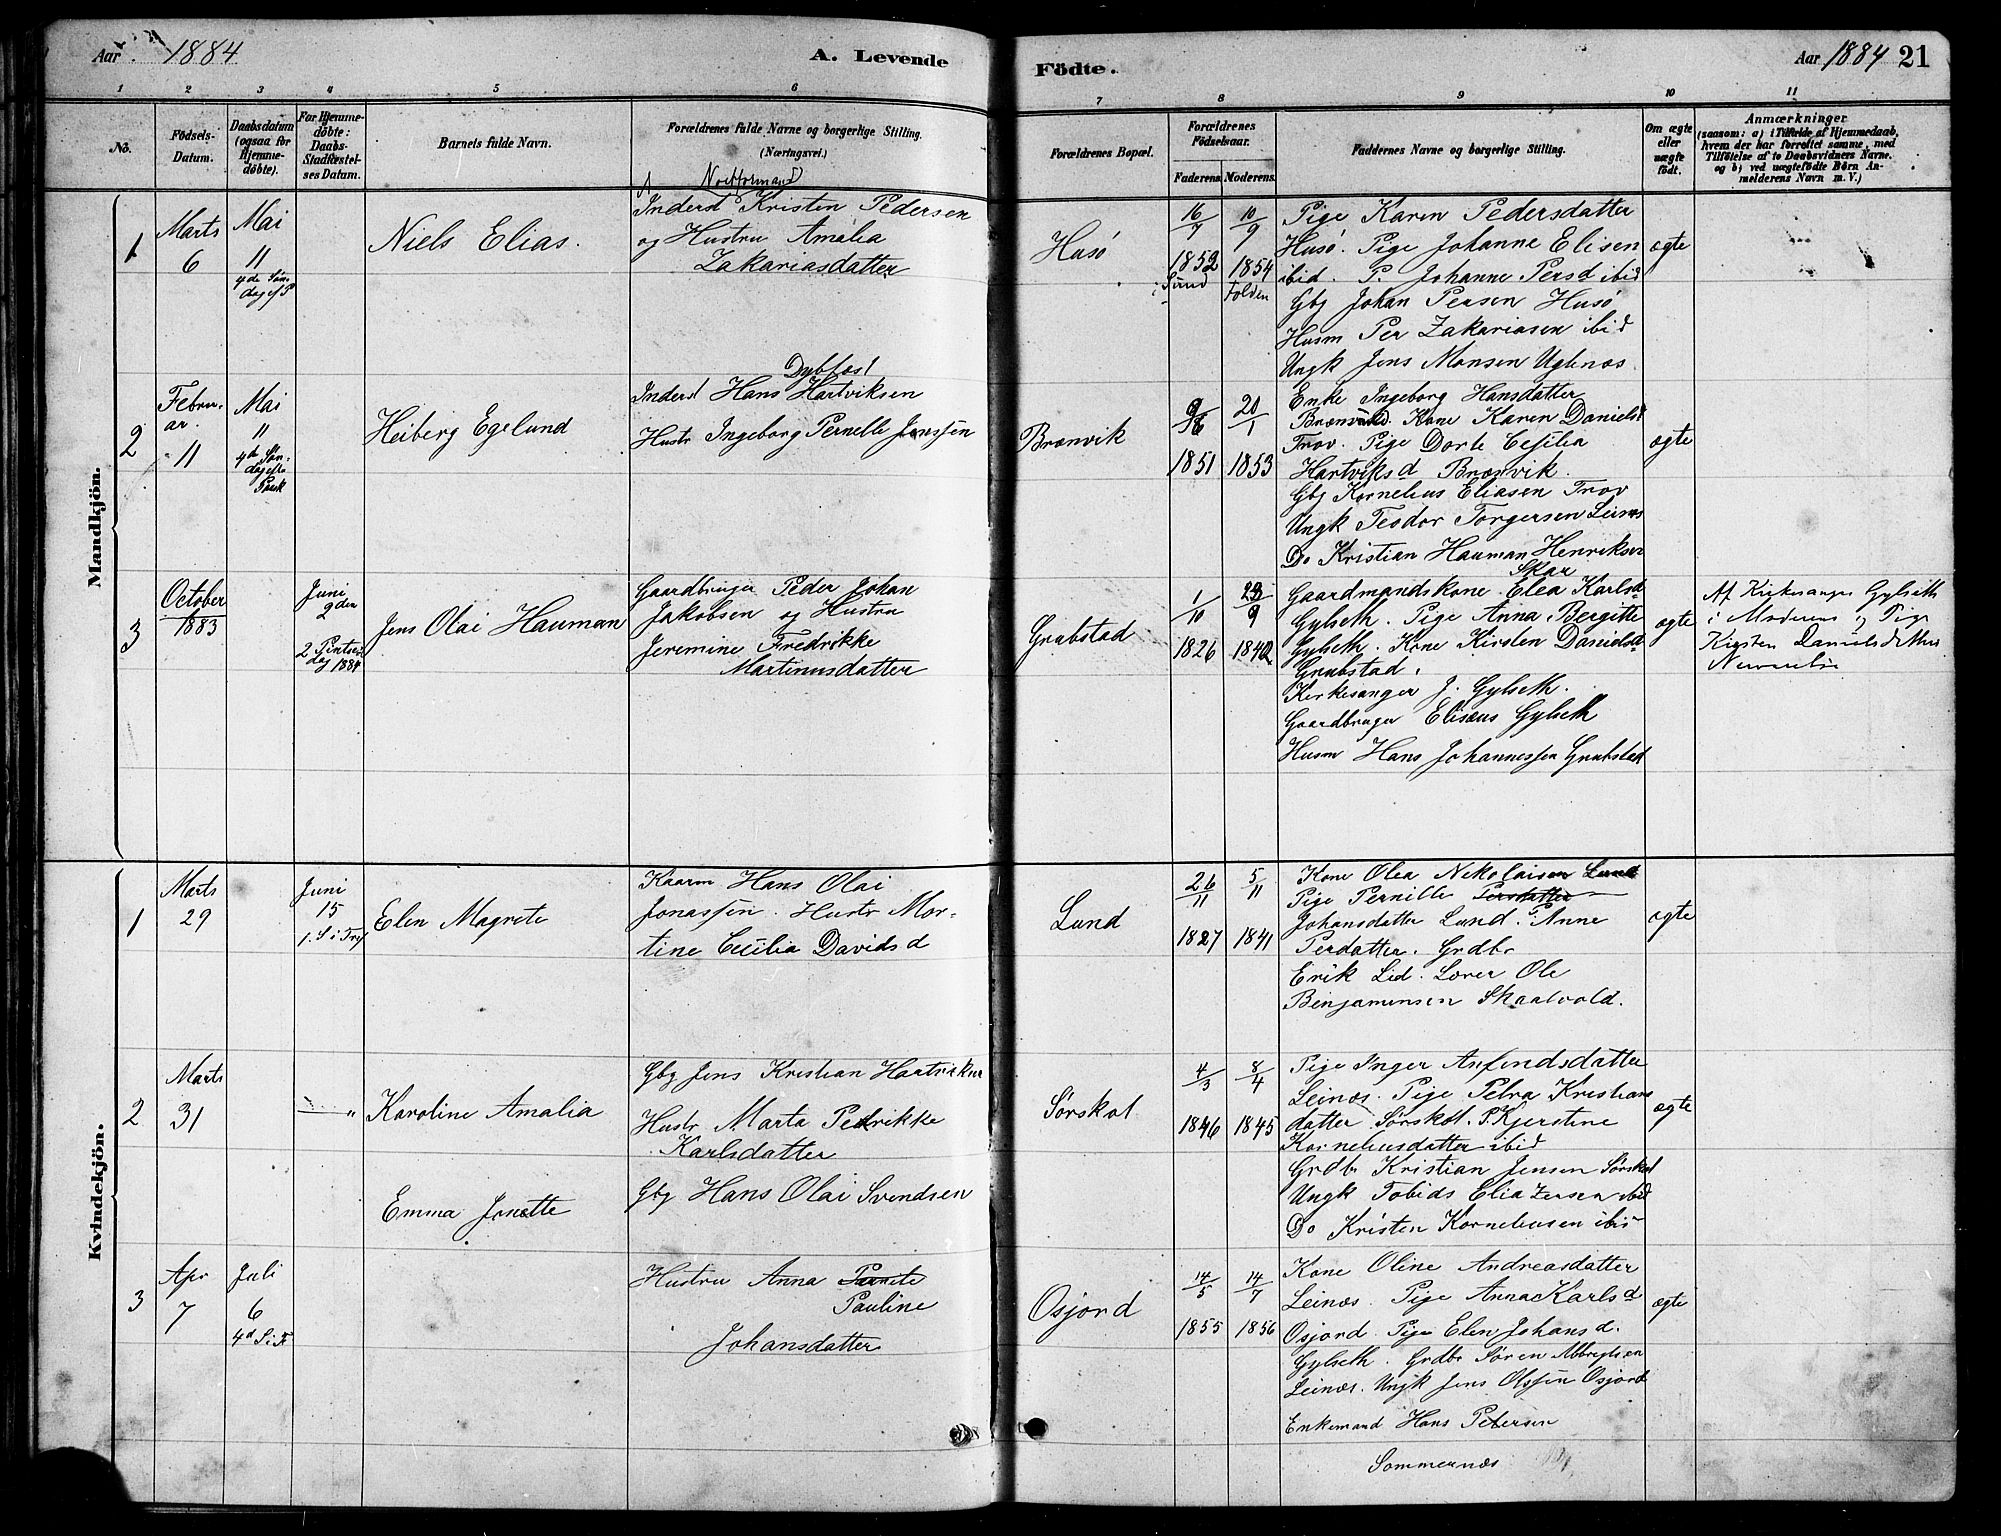 Aar 1884
A. Levende
Födte.
Aar 1884 21
1 2 3 4 5 6 7 8 9 10 11
No.
Födsels-
Datum.
Daabsdatum
(ogsaa for
Hjemme-
döbte).
For Hjemme-
döbte:
Daabs-
Stadfæstel-
ses Datum.
Barnets fulde Navn.
Forældrenes fulde Navne og borgerlige Stilling.
(Næringsvei.)
Forældrenes Bopæl.
Forældrenes
Födselsaar.
Faderens. Moderens.
Faddernes Navne og borgerlige Stilling.
Om ægte
eller
uægte
födt.
Anmærkninger
(saasom: a) i Tilfælde af Hjemmedaab,
hvem der har forrettet samme, med
Tilföielse af to Daabsvidners Navne.
og b) ved uægtefödte Börn An-
melderens Navn m. V.)
Mandkjön.
1
Marts
6
Mai
11
4de Søn-
dag ef P
Niels Elias.
Notformand
Inderst Kristen Pedersen
og Hustru Amalia
Zakariasdatter
Husö
16/7
1852
Sund
10/9
1854
Folden
Pige Karen Pedersdatter
Husö. Pige Johanne Elisen
ibid. P. Johanne Persd ibid
Gbg Johan Persen Husö
Husm Per Zakariasen ibid
Ungk Jens Monsen Uglenæs
ægte
2
Febru-
ar.
11
Mai
11
4de Søn-
dag eft.
Paask
Heiberg Egelund
Dybfæst
Inderst Hans Hartviksen
Hustr Ingeborg Pernelle Jenssen
Brænvik
9/6
1851
20/1
1853
Enke Ingeborg Hansdatter
Kone Karen Danielsd
Trov. Pige Dorte Cesilia
Hartviksd Brænvik
Gbg Kornelius Eliasen Trov
Ungk Teodor Torgersen Leines
Do Kristian Hauman Henriksen
Skar
ægte
3
October
1883
Juni
2den
2 Pintse-
dag 1884
Jens Olai Hauman
Gaardbruger Peder Johan
Jakobsen og Hustru
Jeremine Fredrikke
Martinusdatter
Grubstad
1/10
1826
23/9
1842
Gaardmandskone Elea Karlsd
Gylseth. Pige Anna Bergitte
Gylseth. Kone Kirsten Danielsd
Grubstad.
Kirkesanger J. Gylseth.
Gaardbruger Elisæus Gylseth
Husm Hans Johannessen Grubstad
ægte
Af Kirkesanger Gylseth
i Moderens og Pige
Kirsten Danielsdatters
Nærværelse
Kvindekjön.
1
Marts
29
Juni
15
1. S i Tref
Elen Magrete
Kaarm Hans Olai
Jonassen. Hustr Mor-
tine Cecilia Davidsd
Lund
26/11
1827
5/11
1841
Kone Olea Nikolaisen Lund
Pige Pernille Persdatter
Johansdatter Lund. P. Anne
Perdatter. Grdbr
Erik Lid. Lærer Ole
Benjamensen Skaalvold.
ægte
2
Marts
31
—"
Karoline Amalia
Gbg Jens Kristian Hartviksen
Hustr Marta Pedrikke
Karlsdatter
Sørskot
4/3
1846
8/4
1845
Pige Inger Anfindsdatter
Leinæs. Pige Petra Kristians
datter Sørskot. P. Kjerstine
Korneliusdatter ibid
Grdbr Kristian Jensen Sørskot
Ungk Tobias Eliazersen ibid
Do Kristen Korneliusen ibid
ægte
3
Apr
7
Juli
6
4d S i T
Emma Jonette
Gbg Hans Olai Svendsen
Hustru Anna
Pauline
Johansdatter
Osjord
14/5
1855
14/7
1856
Kone Oline Andreasdatter
Leinæs. Pige Anna Karlsd
Osjord. Pige Elen Johansd.
Gylseth. Grdbr Søren Albregtsen
Leinæs. Ungk Jens Olssen Osjord
Enkemand Hans Petersen
Sommernæs
ægte